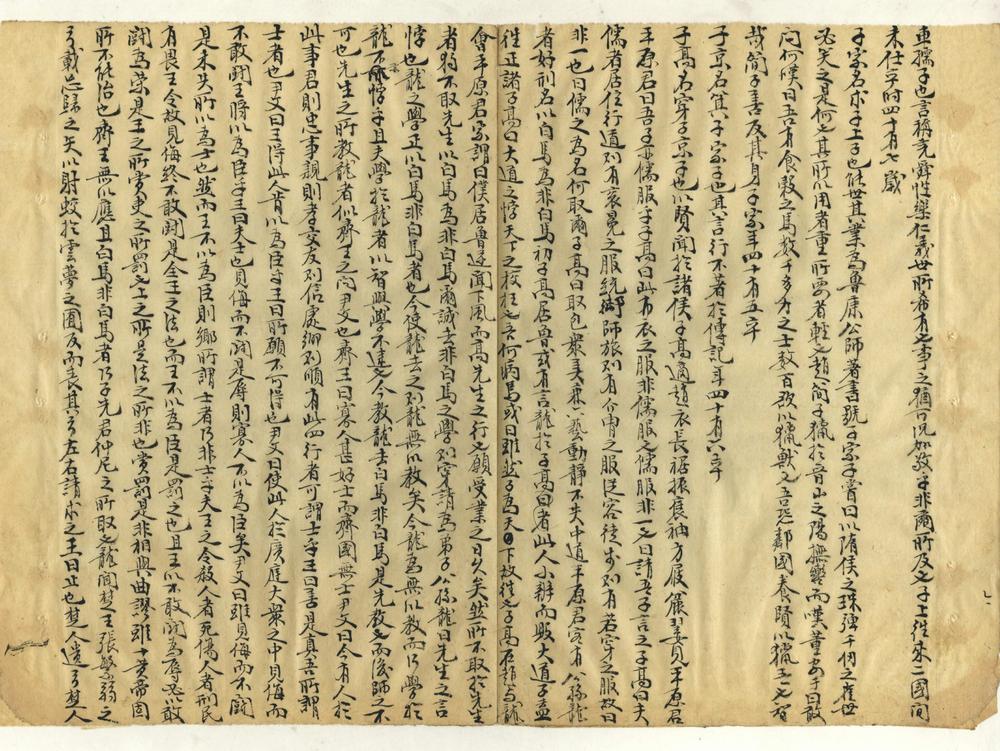 車孺子也言稱堯舜性樂仁義世所希有也事之猶可況加敬乎非爾所及也子上往來二國閒
未仕卒時四十有七歲
子家名求子上子也能世其業為魯康公師著書號子家子嘗曰以隋侯之珠彈千仞之雀世
必笑之是何也其所以用者重所要者輕也趙簡子獵於晉山之陽撫轡而嘆董安于曰敢
問何嘆曰吾有食穀之馬數千多力之士數百欲以獵獸也吾恐鄰國養賢以獵吾也智
哉簡子善反其身子家年四十有五卒
子京名箕子家子也其言行不著於傳記年四十有六卒
子高名穿子京子也以賢聞於諸侯子高適趙衣長裾振褒袖方屐儼翣見平原君
平原君曰吾子亦儒服乎子高曰此布衣之服非儒服也儒服非一也曰請吾子言之子高曰夫
儒者居位行道則有袞冕之服統御師旅則有介冑之服從容徒步則有若穿之服故曰
非一也曰儒之為名何取爾子高曰取包眾美兼六藝動靜不失中道平原君客有公孫龍
者好刑名以白馬為非白馬初子高居魯或有言龍於子高曰者此人小辨而毀大道子盍
往正諸子高曰大道之悖天下之校枉也吾何病焉或曰雖然子為天下故往也子高在趙與龍
會平原君家謂曰僕居魯遂聞下風而高先生之行願受業之日久矣然所不取於先生
者獨不取先生以白馬為非白馬爾誠去非白馬之學則穿請為弟子公孫龍曰先生之言
悖也龍之學正以白馬非白馬者也今使龍去之則龍無以教矣今龍為無以教而乃學於
龍不亦悖乎且夫學於龍者以智與學不逮也今教龍去白馬非白馬是先教也而後師之不
可也先生之所教龍者似齊王之問尹文也齊王曰寡人甚好士而齊國無士尹文曰今有人於
此事君則忠事親則孝交友則信處鄉則順有此四行者可謂士乎王曰善是真吾所謂
士者也尹文曰王得此人肯以為臣乎王曰所願不可得也尹文曰使此人於廣庭大眾之中見侮而
不敢鬭王將以為臣乎王曰夫士也見侮而不鬭是辱則寡人不以為臣矣尹文曰雖見侮而不鬭
是未失所以為士也然而王不以為臣則鄉所謂士者乃非士乎夫王之令殺人者死傷人者刑民
有畏王令故見侮終不敢鬭是全王之法也而王不以為臣是罰之也且王以不敢鬭為辱必以敢
鬭為榮是王之所賞吏之所罰也上之所是法之所非也賞罰是非相與曲謬雖十黃帝固
所不能治也齊王無以應且白馬非白馬者乃子先君仲尼之所取也龍聞楚王張繁弱之
弓載忘歸之矢以射蛟於雲夢之囿反而喪其弓左右請求之王曰止也楚人遺弓楚人